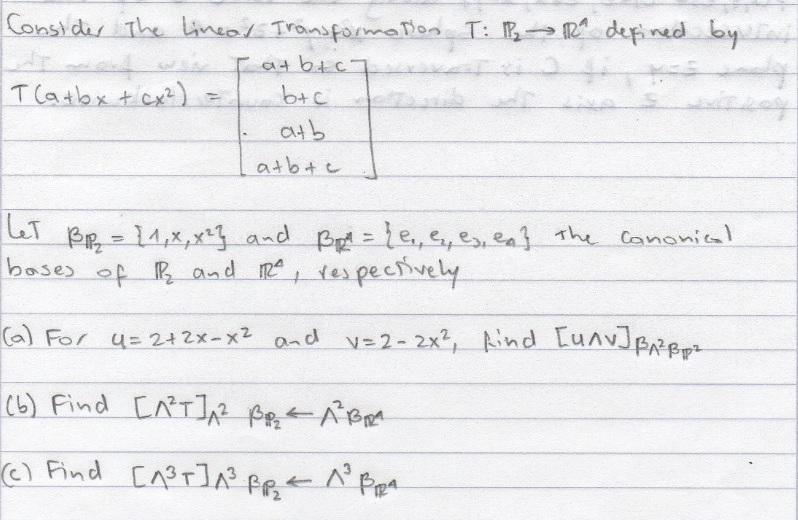 Consider The Linear Transformation T: ℙ₂ → ℝ⁴ defined by
T(a+bx+cx²) = [a+b+c
b+c
a+b
a+b+c]
Let β_ℙ₂ = {1,x,x²} and β_ℝ⁴ = {e₁, e₂, e₃, e₄} the canonical
bases of ℙ₂ and ℝ⁴, respectively
(a) For u=2+2x-x² and v=2-2x², find [u∧v]_β∧²β_ℙ²
(b) Find [∧²T]_∧² β_ℙ₂ ← ∧²β_ℝ⁴
(c) Find [∧³T]_∧³ β_ℙ₂ ← ∧³ β_ℝ⁴